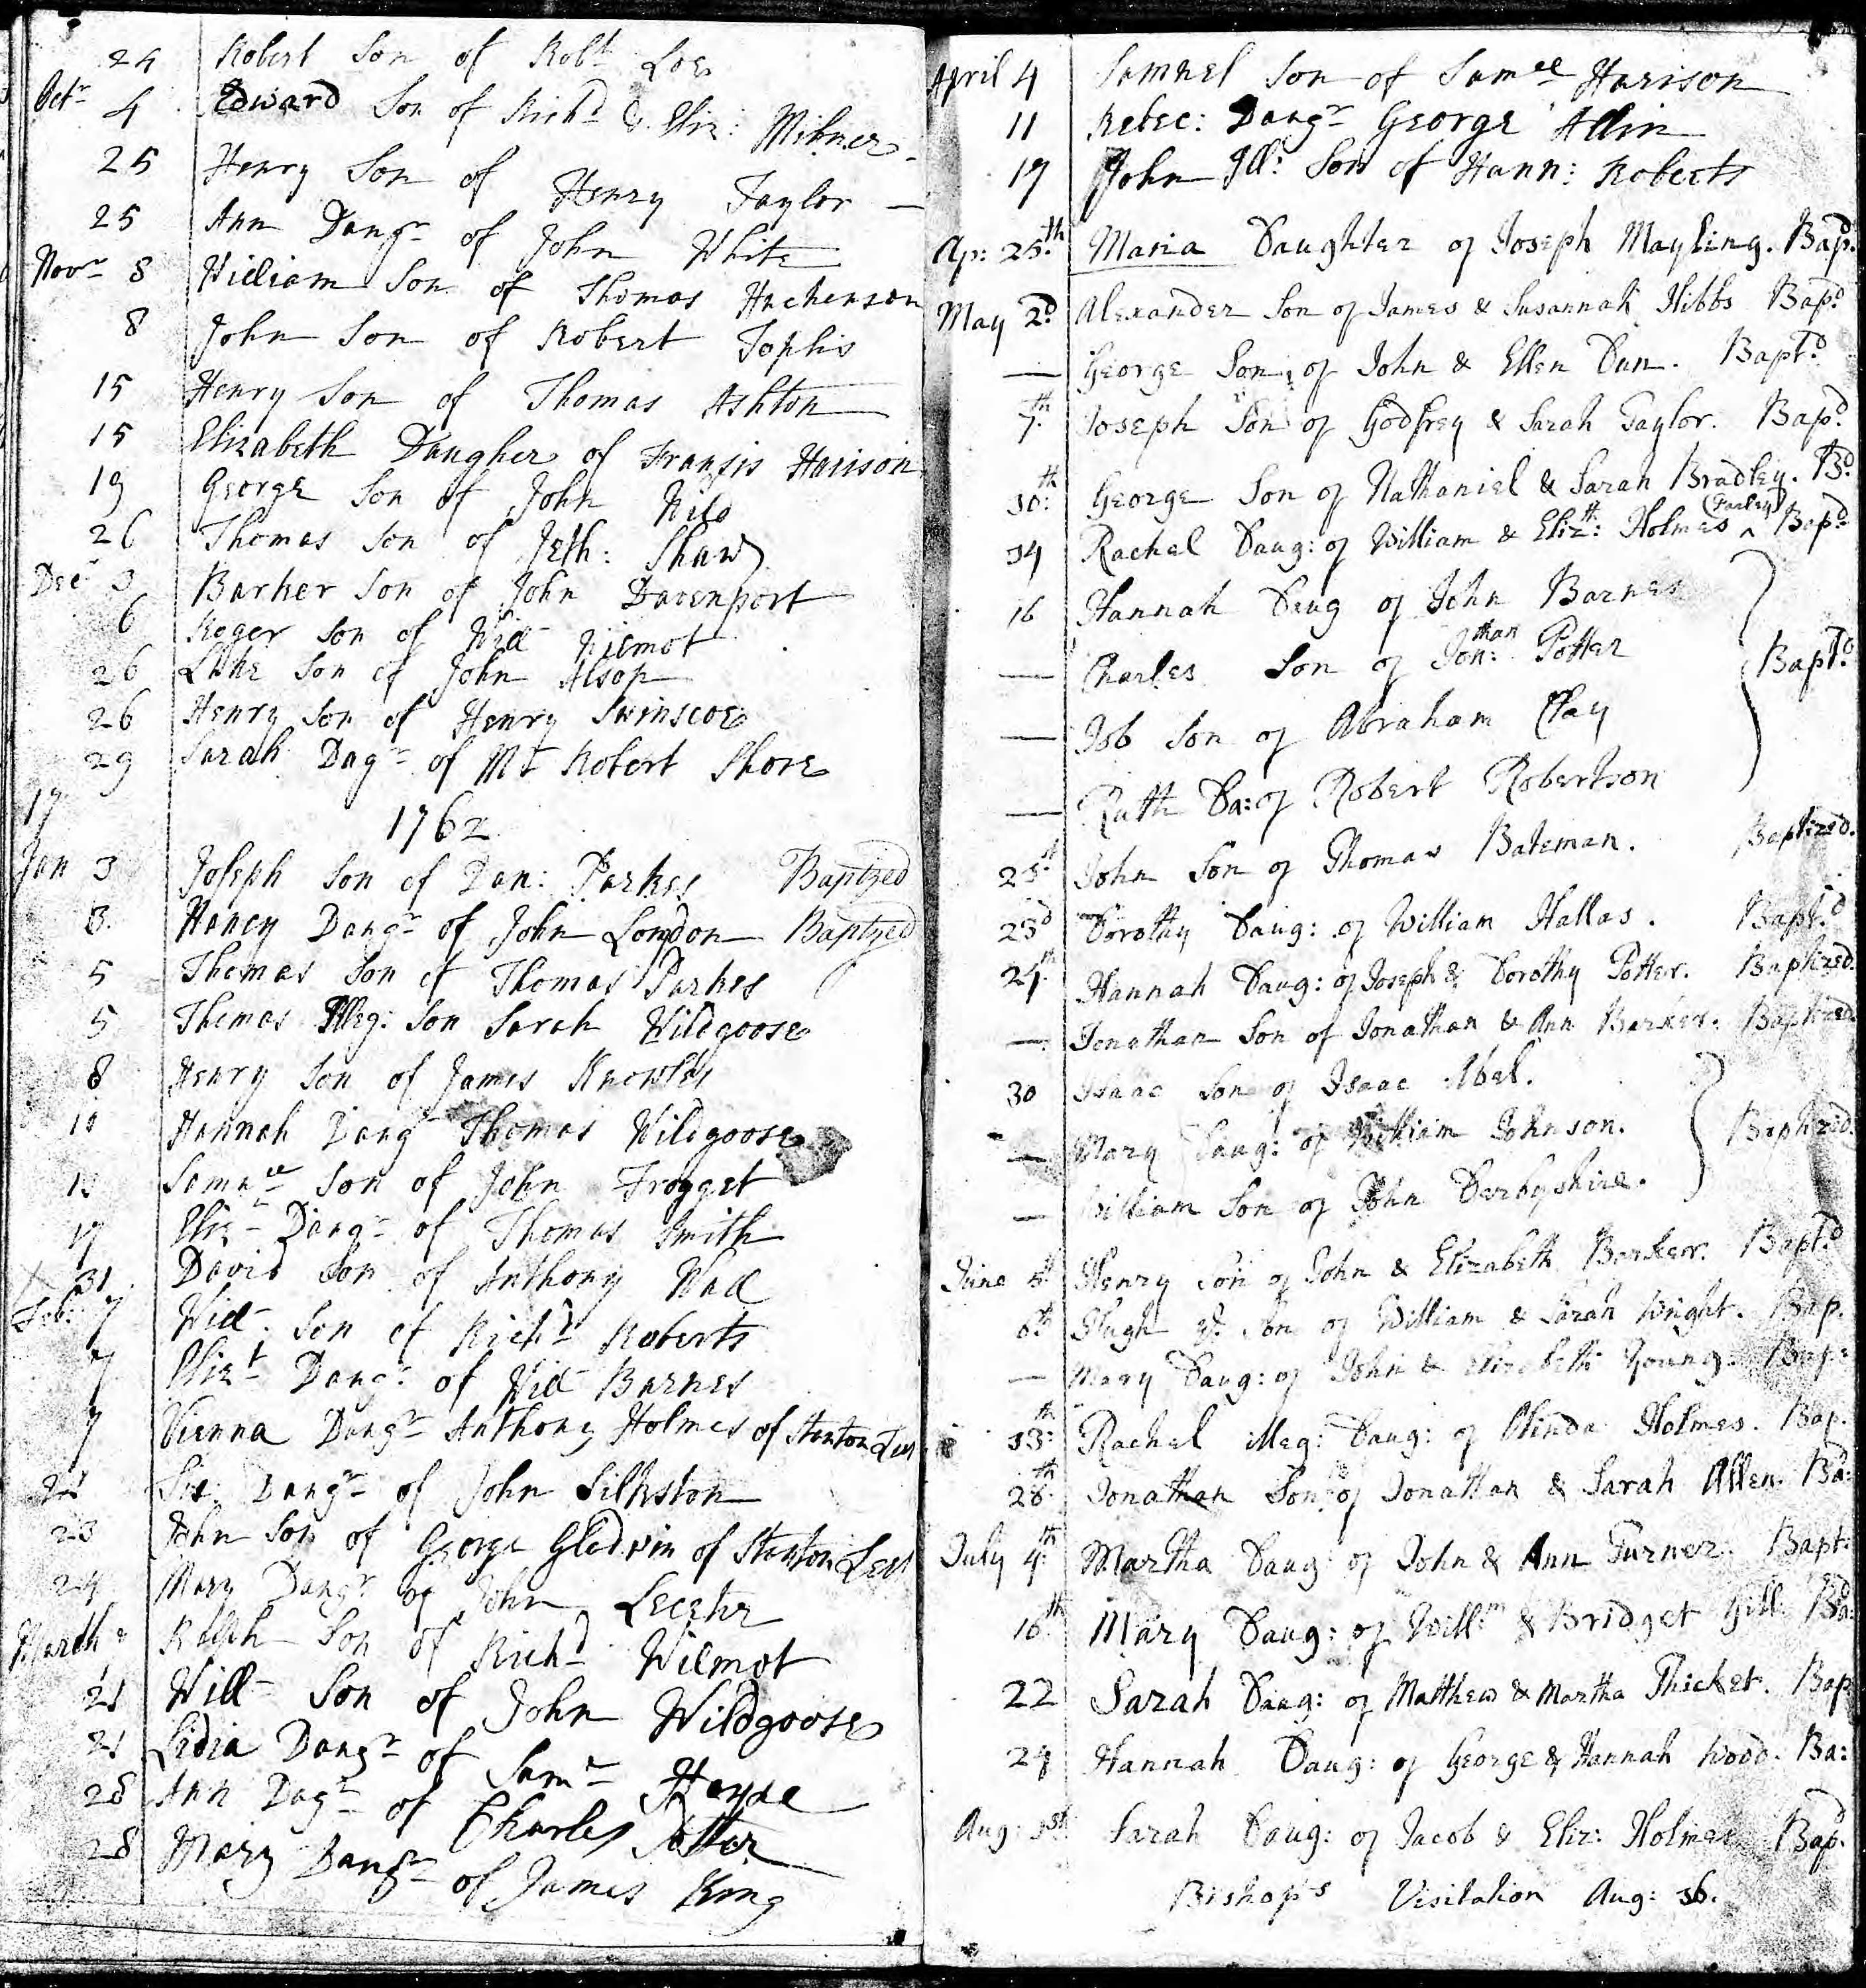 24 Robert Son of Robt Loe
Octr 4 Edward Son of Richd & Eliz: Milner
25 Henry Son of Henry Taylor
25 Ann Daugr of John White
Novr 8 William Son of Thomas Hachenson
8 John Son of Robert Tophis
15 Henry Son of Thomas Ashton
15 Elizabeth Daugher of Fransis Harison
19 George Son of John Wild
26 Thomas Son of Jeth: Shaw
Decr 3 Barker Son of John Davenport
6 Roger Son of Will Wilmot
26 Luke Son of John Alsop
26 Henry Son of Henry Swinscoe
29 Sarah Dagr of Mr Robert Shore
17
1762
Jan 3 Joseph Son of Dan: Parkes Baptzed
3 Nancy Daugr of John London Baptzed
5 Thomas Son of Thomas Parkes
5 Thomas Illeg: Son Sarah Wildgoose
8 Henry Son of James Knowles
10 Hannah Daugr Thomas Wildgoose
Samll Son of John Frogget
17 Eliz Daugr of Thomas Smith
31 David Son of Anthony Wall
Feb: 7 Will Son of Richd Roberts
7 Elizt Daugr of Will Barnes
7 Vienna Daugr Anthony Holmes of Stanton Lees
21 Daugr of John Silkston
23 John Son of George Gledwin of Stanton Lees
24 Mary Daugr of John
March Ralph Son of Richd Wilmot
21 Will Son of John Wildgoose
21 Lidia Daugr of Saml
28 Ann Dagr of Charles Potter
28 Mary Daugr of James King
April 4 Samuel Son of Samll Harison
11 Rebec: Daugr George Allin
19 John Ill: Son of Hann: Roberts
Ap: 25th Maria Daughter of Joseph Mayling. Bapd
May 2d Alexander Son of James & Susannah Hibbs Bapd
— George Son of John & Ellen Dan. Baptd
7th Joseph Son of Godfrey & Sarah Taylor. Bapd
10th George Son of Nathaniel & Sarah Bradley. Bd
14 Rachel Daug: of William & Elizth: Holmes ^ (Farley) Bapd
16 Hannah Daug of John Barnes
— Charles Son of Jonthan: Potter Baptd
— Job Son of Abraham Clay
— Ruth Da: of Robert Robertson
John Son of Thomas Bateman. Baptized.
23d Dorothy Daug: of William Hallas. Baptd
24th Hannah Daug: of Joseph & Dorothy Potter. Baptized.
— Jonathan Son of Jonathan & Ann Barker. Baptized.
30 Isaac Son of Isaac Abel.
— Mary Daug: of William Johnson. Baptized.
— William Son of John Darbyshire.
June Henry Son of John & Elizabeth Barker. Baptd
6th Hugh Son of William & Sarah Wright. Bap.
— Mary Daug: of John & Elizabeth Young. Bap:
13th Rachel illeg: Daug: of Olinda Holmes. Bap.
28th Jonathan Son of Jonathan & Sarah Allen. Ba:
July 4th Martha Daug: of John & Ann Turner. Bapt:
16th Mary Daug: of Willm & Bridget Gill. Ba:
22 Sarah Daug: of Matthew & Martha Thicket. Bap
24 Hannah Daug: of George & Hannah Wood. Ba:
Aug: 1st Sarah Daug: of Jacob & Eliz: Holmes Bap.
Bishop's Visitation Aug: 16.